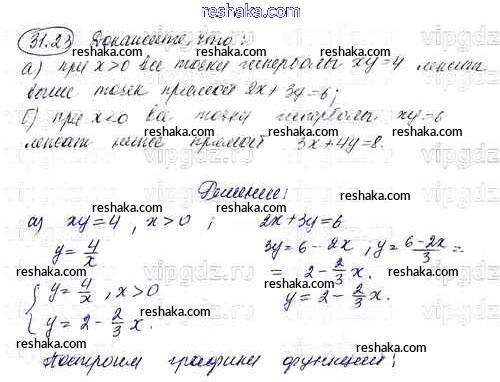 reshaka.com
31.23 Докажите, что:
reshaka.com
а) при x>0 все точки гиперболы xy=4 лежат
reshaka.com
выше точек прямой 2x+3y=6;
reshaka.com
б) при x<0 все точки гиперболы xy=6
reshaka.com reshaka.com
лежат ниже прямой 3x+4y=8.
reshaka.com reshaka.com
vipgdz.ru
Решение:
reshaka.com reshaka.com
а) xy=4, x>0; 2x+3y=6
reshaka.com
y=4/x 3y=6-2x, y=(6-2x)/3=
reshaka.com reshaka.com
{ y=4/x, x>0 = 2-2/3x.
reshaka.com
y=2-2/3x. y=2-2/3x.
reshaka.com reshaka.com
Построим графики функций:
reshaka.com reshaka.com